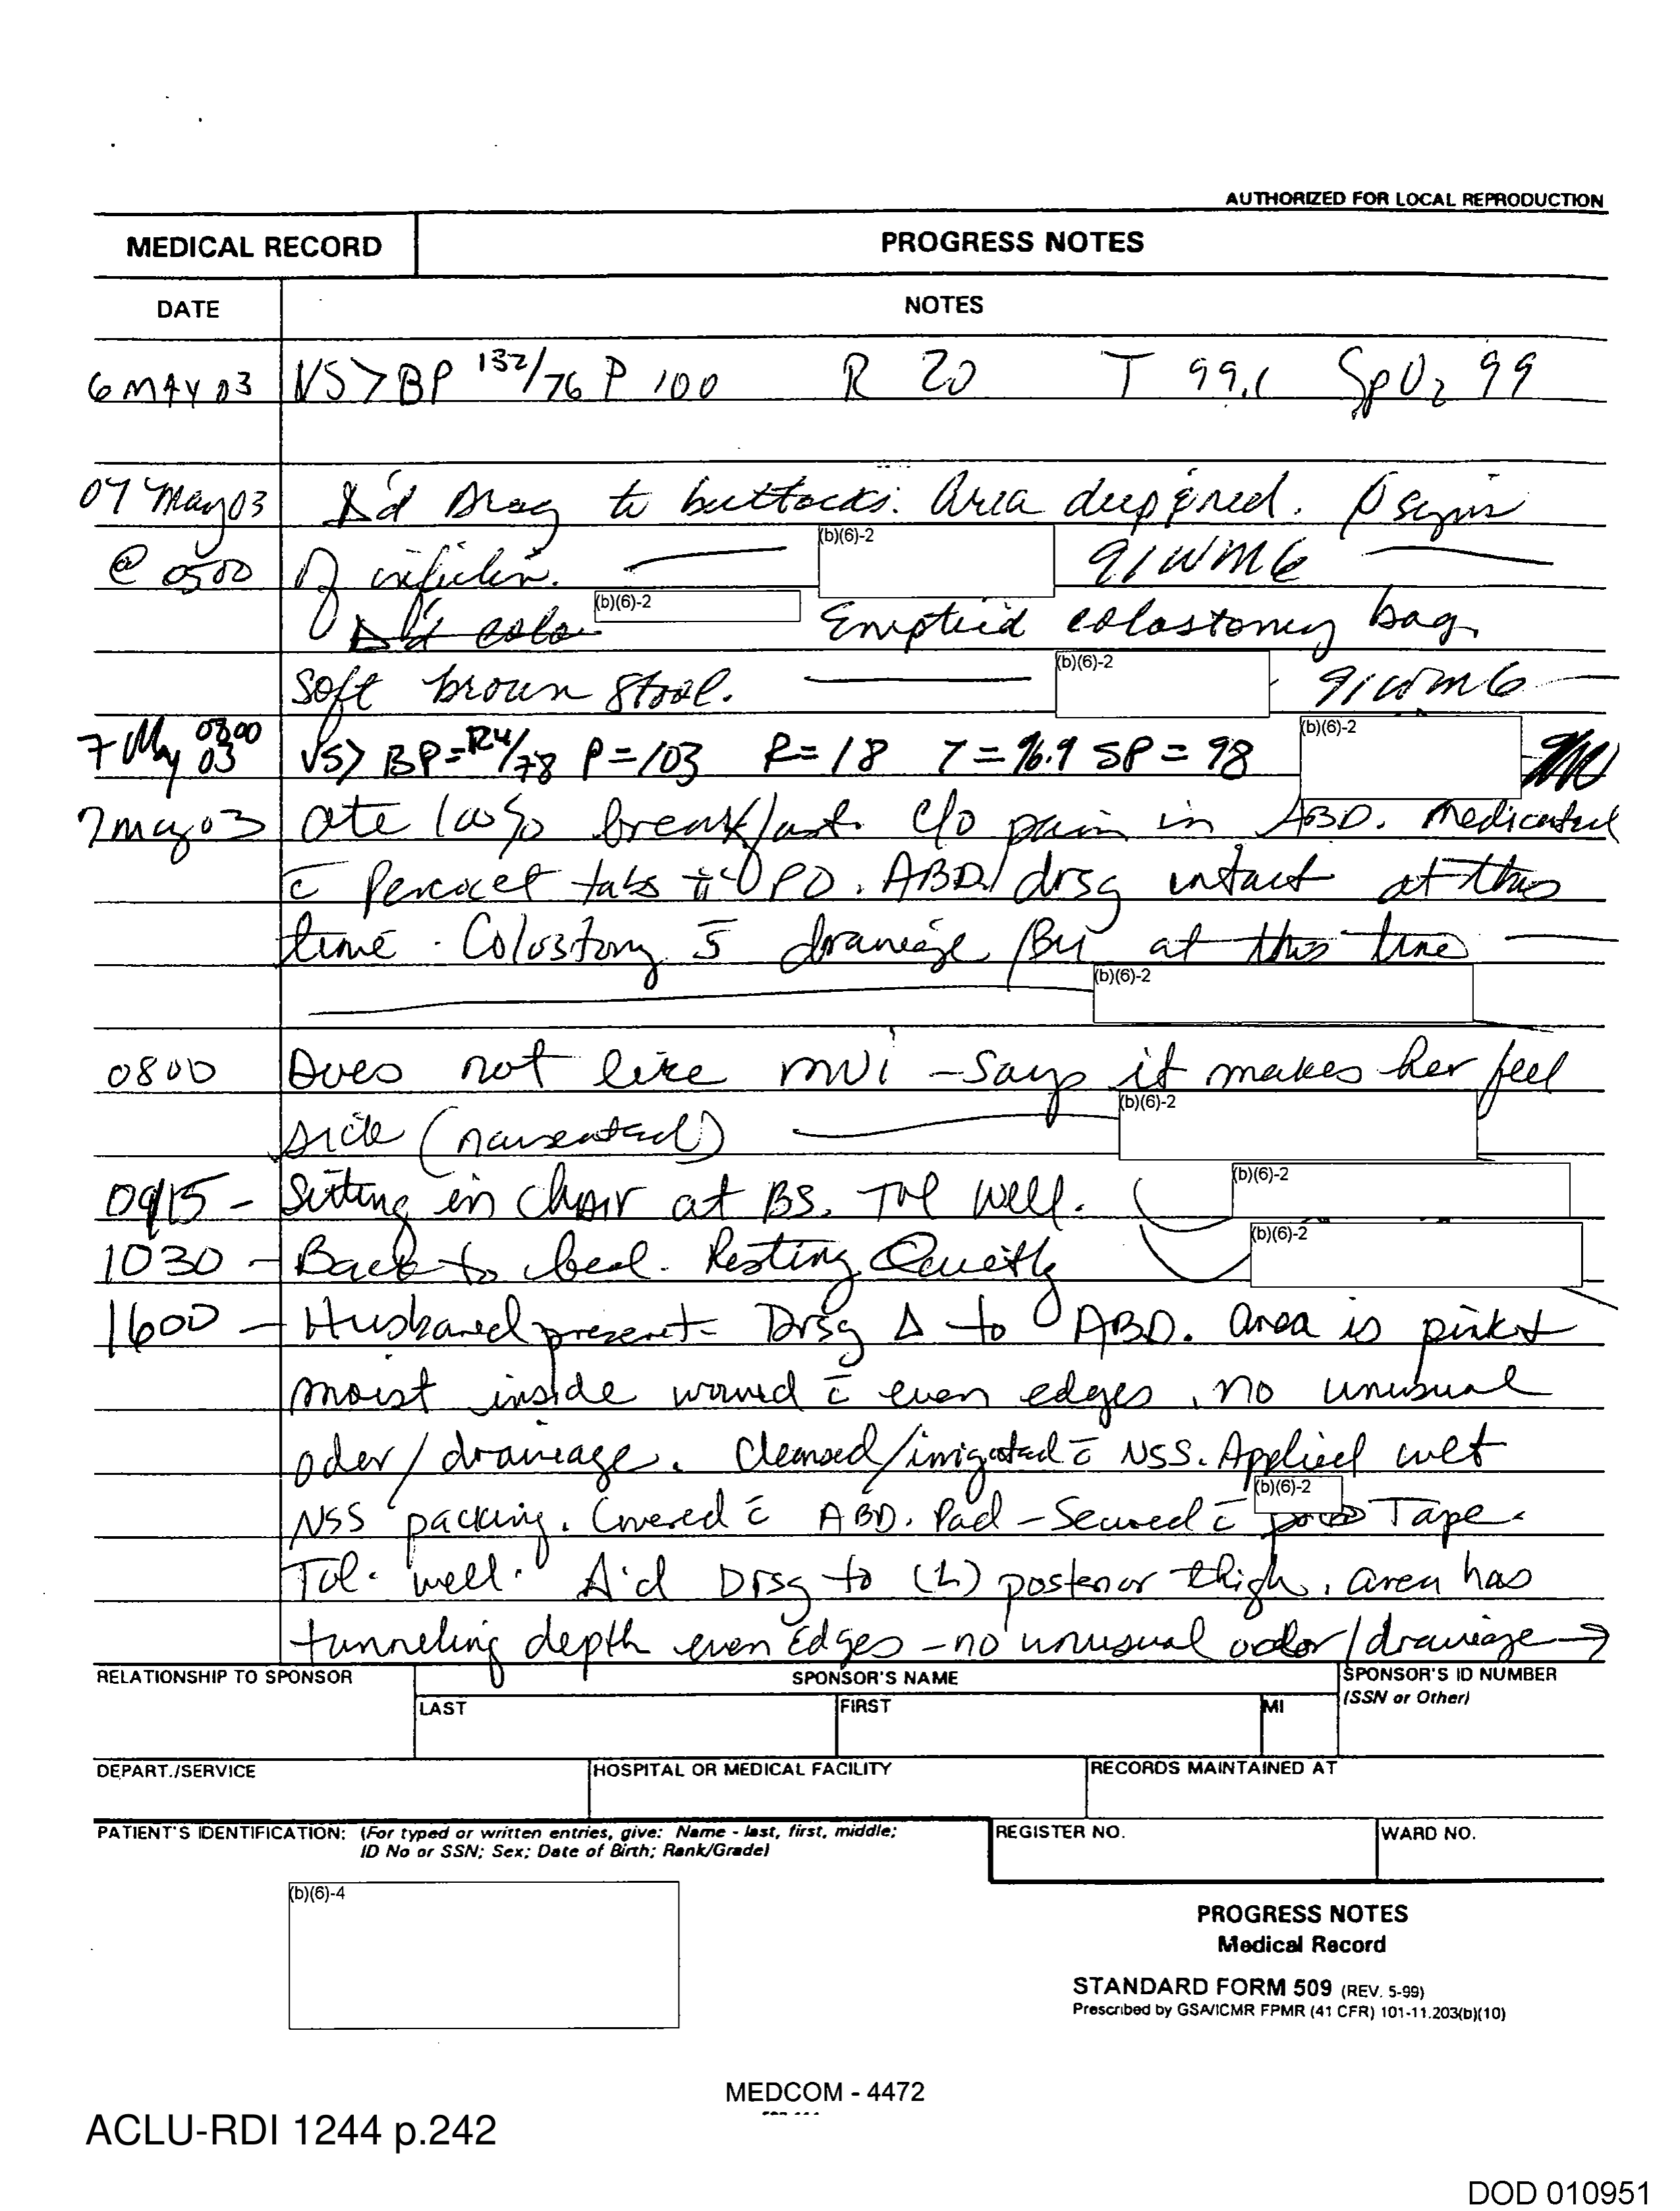 AUTHORIZED FOR LOCAL REPRODUCTION
MEDICAL RECORD PROGRESS NOTES
DATE NOTES
6 MAY 03 VS> BP 132/76 P 100 R 20 T 99.1 SpO2 99
07 May 03 Δ'd Drsg to buttocks. Area deepened. Ø signs
@ 0500 of infection. (b)(6)-2 91WM6
Δ'd colo (b)(6)-2 Emptied colostomy bag.
soft brown stool. (b)(6)-2 91WM6
7 May 03 0800 VS> BP=124/78 P=103 R=18 T=96.9 SP=98 (b)(6)-2
7 may 03 ate 100% breakfast. c/o pain in ABD. Medicated
c̄ Percocet tabs ii PO. ABD drsg intact at this
time. Colostomy s̄ drainage /BM at this time
(b)(6)-2
0800 Does not like mvi - Says it makes her feel
sick (nauseated) (b)(6)-2
0915 - Sitting in chair at BS. Tol well. (b)(6)-2
1030 - Back to bed. Resting Quietly (b)(6)-2
1600 - Husband present - Drsg Δ to ABD. area is pink +
moist inside wound c̄ even edges, no unusual
oder/draineage. Cleansed/irrigated c̄ NSS. Applied wet
NSS packing. Covered c̄ ABD. Pad - Secured c̄ (b)(6)-2 Tape.
Tol. well. Δ'd Drsg to (L) posterior thigh. area has
tunneling depth even Edges - no unusual odor/draineage →
RELATIONSHIP TO SPONSOR SPONSOR'S NAME SPONSOR'S ID NUMBER
LAST FIRST MI (SSN or Other)
DEPART./SERVICE HOSPITAL OR MEDICAL FACILITY RECORDS MAINTAINED AT
PATIENT'S IDENTIFICATION: (For typed or written entries, give: Name - last, first, middle; REGISTER NO. WARD NO.
ID No or SSN; Sex; Date of Birth; Rank/Grade)
(b)(6)-4
PROGRESS NOTES
Medical Record
STANDARD FORM 509 (REV. 5-99)
Prescribed by GSA/ICMR FPMR (41 CFR) 101-11.203(b)(10)
MEDCOM - 4472
ACLU-RDI 1244 p.242
DOD 010951